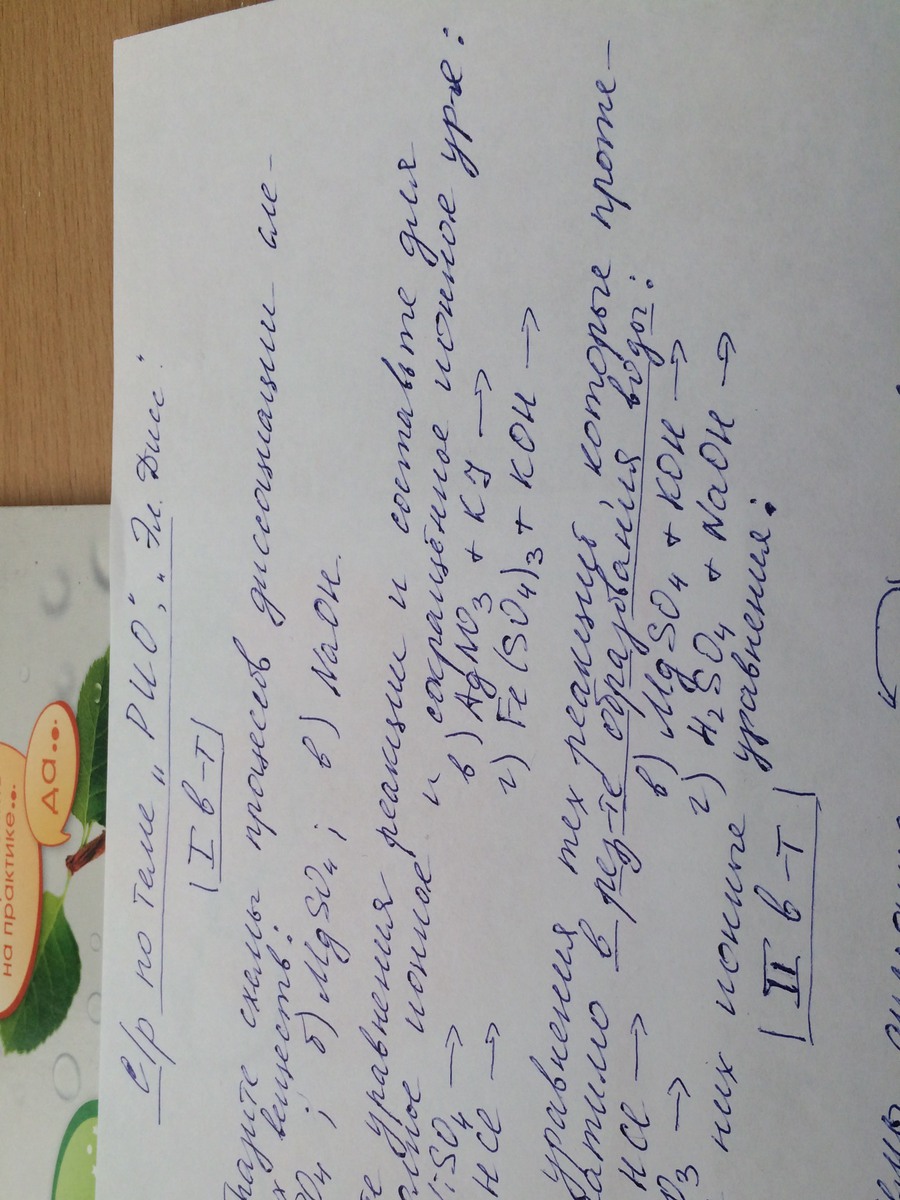 на практике...
да...
С/р по теме „РИО", „Эл. Дисс."
I в-т
схемы процессов диссоциации сле-
веществ:
O₄ ; б) MgSO₄ ; в) NaOH.
уравнения реакции и составьте для
ионное и сокращённое ионное ур-е:
SO₄ → в) AgNO₃ + KJ →
HCl → г) Fe(SO₄)₃ + KOH →
уравнения тех реакций которые проте-
в рез-те образования воды:
HCl → в) MgSO₄ + KOH →
₃ → г) H₂SO₄ + NaOH →
них ионные уравнения:
II в-т